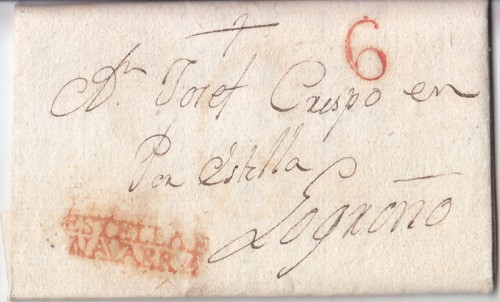 6
Dn Josef Crespo en
Por Estella
Logroño
ESTELLA
NAVARRA